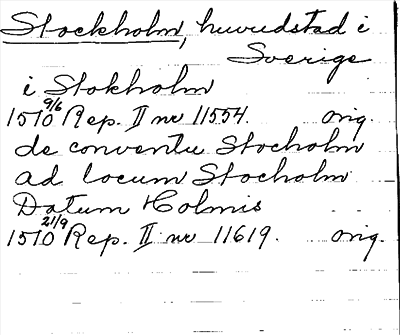 Stockholm, huvudstad i
Sverige
i Stokholm
1510 9/6 Rep. II nr 11554. orig.
de conventu Stocholm
ad locum Stocholm
Datum Holmis
1510 21/9 Rep. II nr 11619. orig.